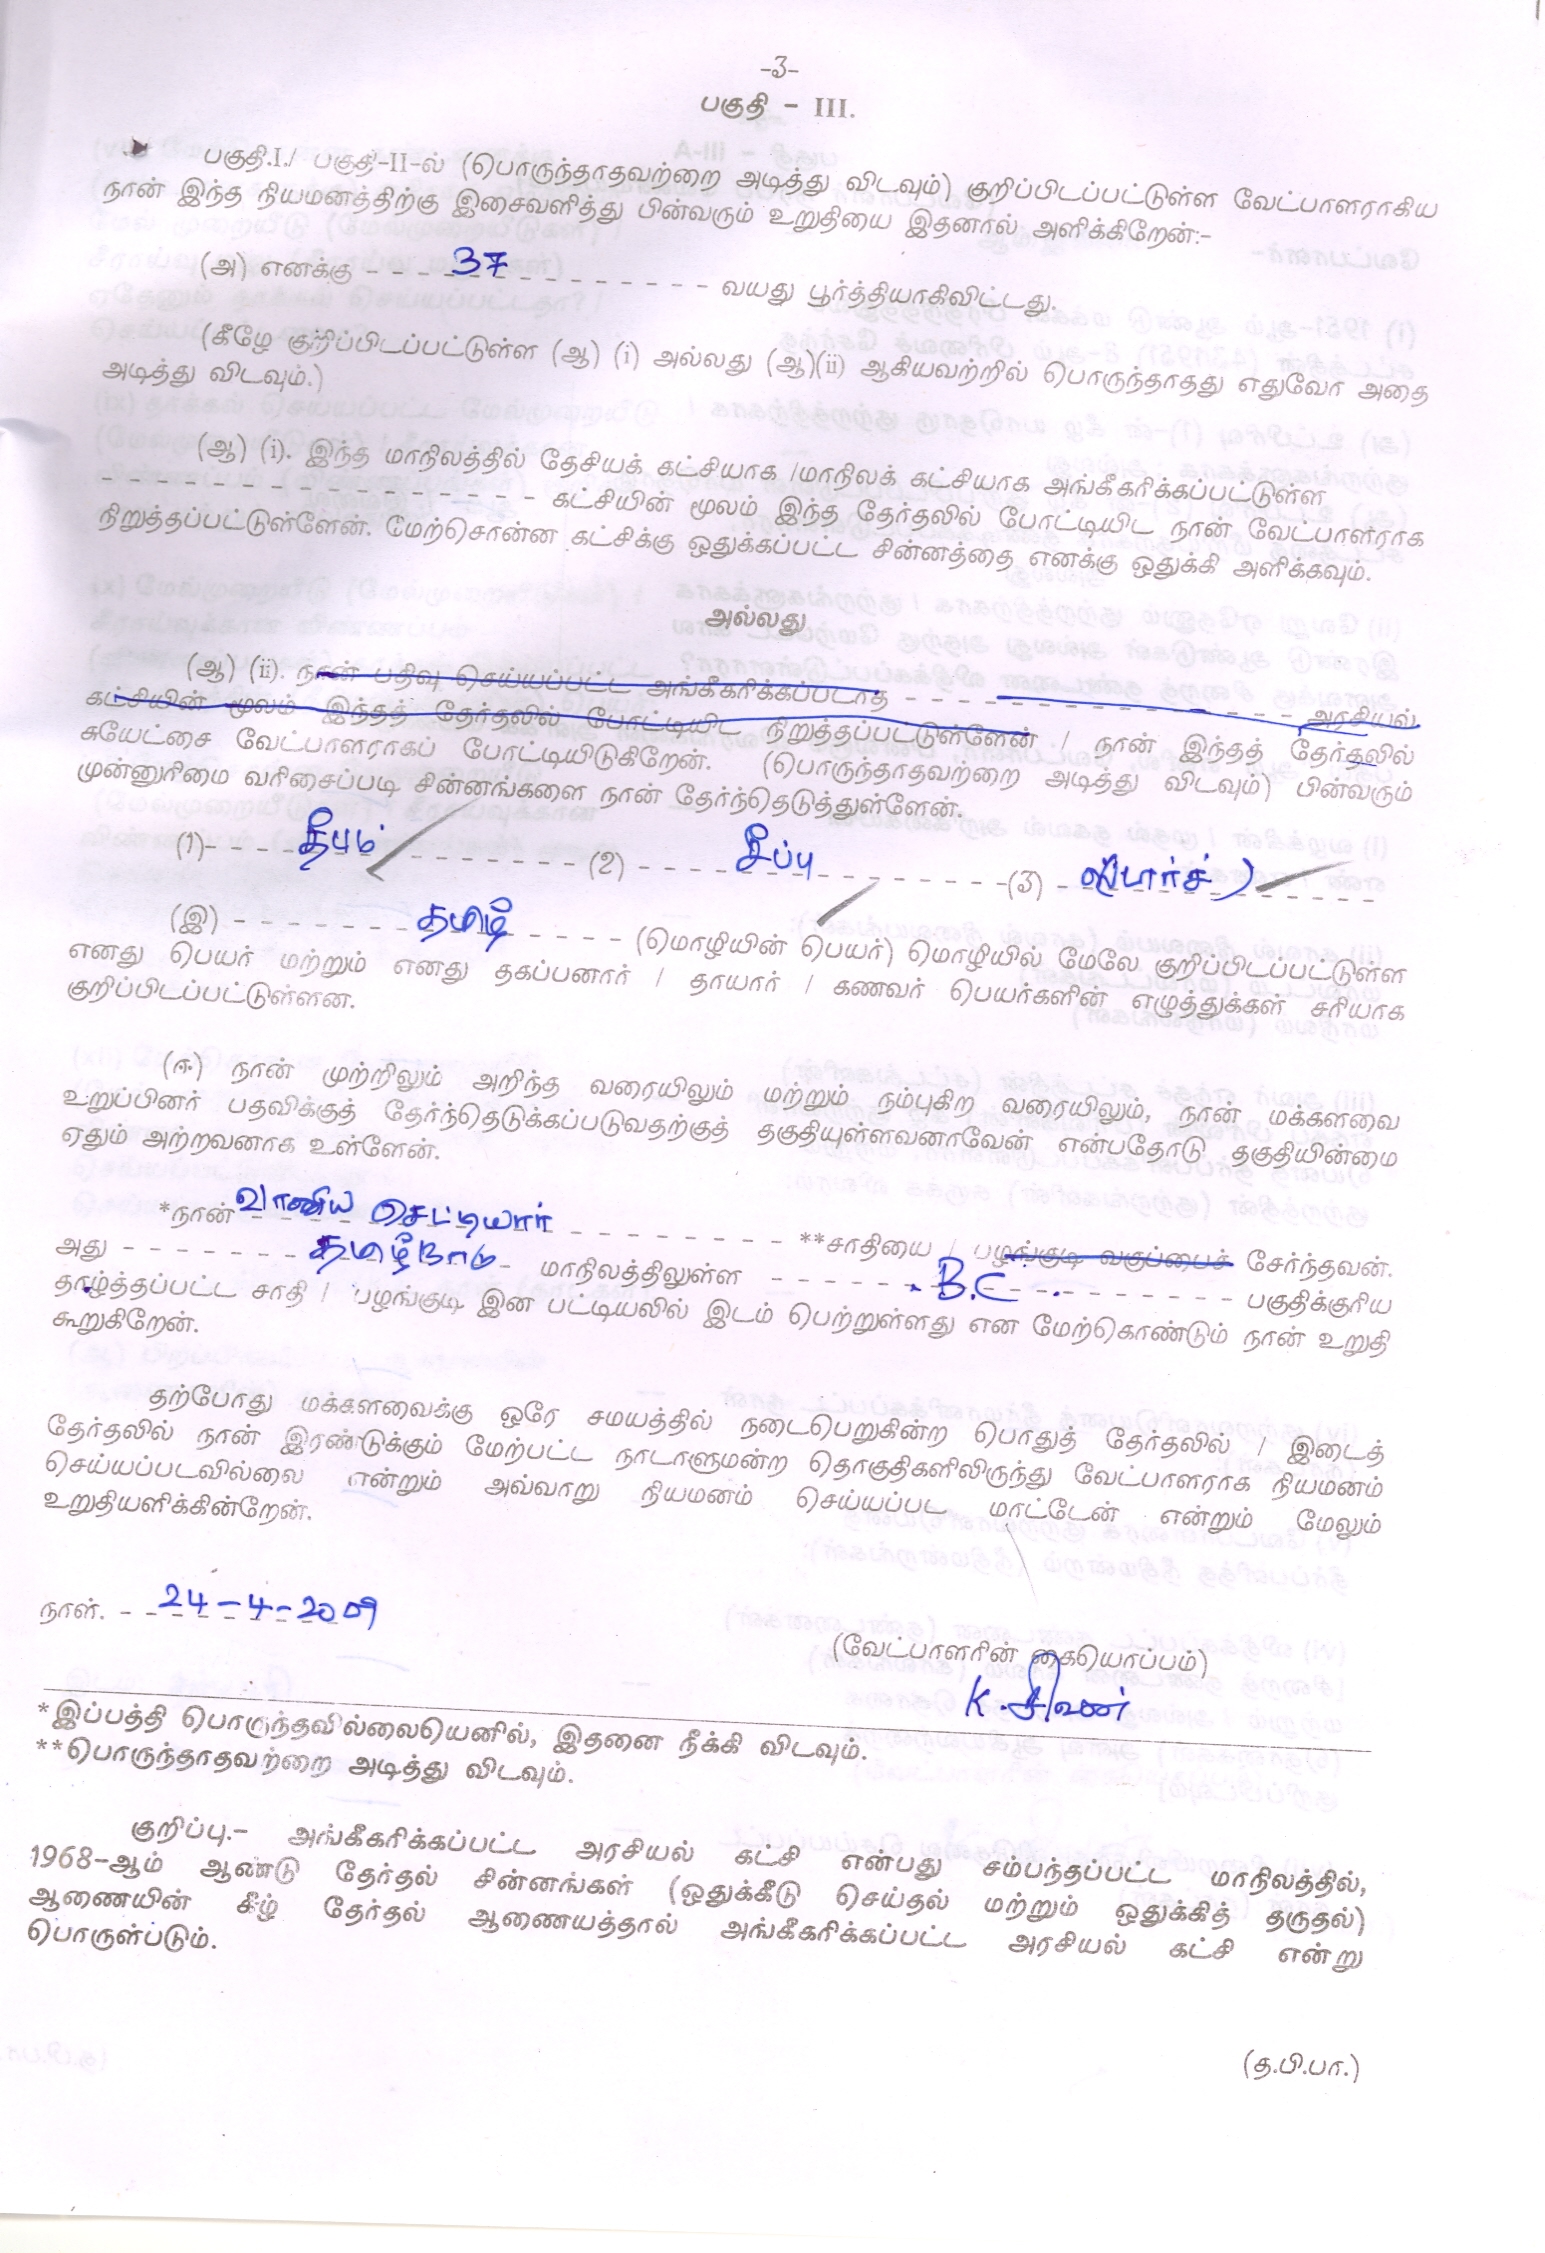 -3-
பகுதி - III.
பகுதி.I./ பகுதி-II-ல் (பொருந்தாதவற்றை அடித்து விடவும்) குறிப்பிடப்பட்டுள்ள வேட்பாளராகிய
நான் இந்த நியமனத்திற்கு இசைவளித்து பின்வரும் உறுதியை இதனால் அளிக்கிறேன்:-
(அ) எனக்கு - - - - 37 - - - - - - - - வயது பூர்த்தியாகிவிட்டது.
(கீழே குறிப்பிடப்பட்டுள்ள (ஆ) (i) அல்லது (ஆ)(ii) ஆகியவற்றில் பொருந்தாதது எதுவோ அதை
அடித்து விடவும்.)
(ஆ) (i). இந்த மாநிலத்தில் தேசியக் கட்சியாக /மாநிலக் கட்சியாக அங்கீகரிக்கப்பட்டுள்ள
- - - - - - - - - - - - - - - - கட்சியின் மூலம் இந்த தேர்தலில் போட்டியிட நான் வேட்பாளராக
நிறுத்தப்பட்டுள்ளேன். மேற்சொன்ன கட்சிக்கு ஒதுக்கப்பட்ட சின்னத்தை எனக்கு ஒதுக்கி அளிக்கவும்.
அல்லது
(ஆ) (ii). நான் பதிவு செய்யப்பட்ட அங்கீகரிக்கப்படாத - - - - - - - - - - - - - - - அரசியல்
கட்சியின் மூலம் இந்தத் தேர்தலில் போட்டியிட நிறுத்தப்பட்டுள்ளேன் / நான் இந்தத் தேர்தலில்
சுயேட்சை வேட்பாளராகப் போட்டியிடுகிறேன். (பொருந்தாதவற்றை அடித்து விடவும்) பின்வரும்
முன்னுரிமை வரிசைப்படி சின்னங்களை நான் தேர்ந்தெடுத்துள்ளேன்.
(1)- - - - தீபம் - - - - - - - - (2) - - - - சீப்பு - - - - - - - -(3) - - - - - - - -
(இ) - - - - - - - தமிழ் - - - - - (மொழியின் பெயர்) மொழியில் மேலே குறிப்பிடப்பட்டுள்ள
எனது பெயர் மற்றும் எனது தகப்பனார் / தாயார் / கணவர் பெயர்களின் எழுத்துக்கள் சரியாக
குறிப்பிடப்பட்டுள்ளன.
(ஈ) நான் முற்றிலும் அறிந்த வரையிலும் மற்றும் நம்புகிற வரையிலும், நான் மக்களவை
உறுப்பினர் பதவிக்குத் தேர்ந்தெடுக்கப்படுவதற்குத் தகுதியுள்ளவனாவேன் என்பதோடு தகுதியின்மை
ஏதும் அற்றவனாக உள்ளேன்.
*நான் வாணிய செட்டியார் - - - - - - - - **சாதியை / பழங்குடி வகுப்பைச் சேர்ந்தவன்.
அது - - - - - - - தமிழ்நாடு - மாநிலத்திலுள்ள - - - - - - B.C - - - - - - - பகுதிக்குரிய
தாழ்த்தப்பட்ட சாதி / பழங்குடி இன பட்டியலில் இடம் பெற்றுள்ளது என மேற்கொண்டும் நான் உறுதி
கூறுகிறேன்.
தற்போது மக்களவைக்கு ஒரே சமயத்தில் நடைபெறுகின்ற பொதுத் தேர்தலில் / இடைத்
தேர்தலில் நான் இரண்டுக்கும் மேற்பட்ட நாடாளுமன்ற தொகுதிகளிலிருந்து வேட்பாளராக நியமனம்
செய்யப்படவில்லை என்றும் அவ்வாறு நியமனம் செய்யப்பட மாட்டேன் என்றும் மேலும்
உறுதியளிக்கின்றேன்.
நாள். - - 24-4-2009
(வேட்பாளரின் கையொப்பம்)
K. சிவன்
*இப்பத்தி பொருந்தவில்லையெனில், இதனை நீக்கி விடவும்.
**பொருந்தாதவற்றை அடித்து விடவும்.
குறிப்பு.- அங்கீகரிக்கப்பட்ட அரசியல் கட்சி என்பது சம்பந்தப்பட்ட மாநிலத்தில்,
1968-ஆம் ஆண்டு தேர்தல் சின்னங்கள் (ஒதுக்கீடு செய்தல் மற்றும் ஒதுக்கித் தருதல்)
ஆணையின் கீழ் தேர்தல் ஆணையத்தால் அங்கீகரிக்கப்பட்ட அரசியல் கட்சி என்று
பொருள்படும்.
(த.பி.பா.)